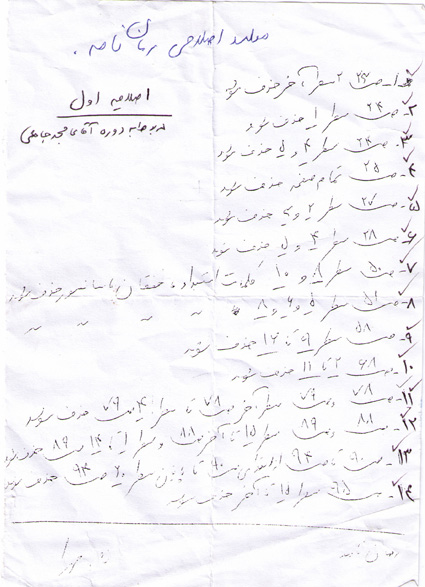 موارد اصلاحی رمان نامه.
اصلاحیه اول
مربوط به دوره آقای
۱- ص ۲۳ ۲ سطر آخر حذف شود
۲- ص ۲۴ سطر ۱ حذف شود
۳- ص ۲۴ سطر ۴ و ۵ حذف شود
۴- ص ۲۵ تمام صفحه حذف شود
۵- ص ۲۷ سطر ۲ و حذف شود
۶- ص ۲۸ سطر ۴ و ۵ حذف شود
۷- ص ۵۰ سطر و ۱۰ کلمات استبداد، خفقان یا سانسور حذف شود
۸- ص ۵۱ سطر ۵ و ۶ و ۸ " " " "
۹- ص ۵۸ سطر ۹ تا ۱۶ حذف شود
۱۰- ص ۶۸ ۲ تا ۱۱ حذف شود
۱۱- ص ۷۸ و ص ۷۹ سطر آخر ص ۷۸ تا سطر ۴ ص ۷۹ حذف شود
۱۲- ص ۸۸ و ص ۸۹ سطر ۱۵ تا آخر ص ۸۸ و سطر ۱ تا ۱۴ ص ۸۹ حذف شود
۱۳- ص ۹۰ تا ص ۹۴ از ص ۹۰ تا پایان سطر ص ۹۴ حذف شود
۱۴- ص ۹۵ سطر ۱۵ تا آخر حذف شود